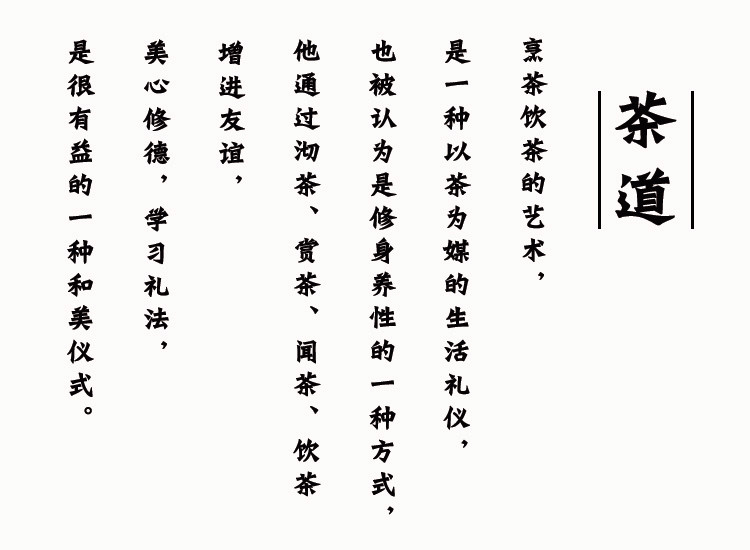 茶道
烹茶饮茶的艺术，
是一种以茶为媒的生活礼仪，
也被认为是修身养性的一种方式，
他通过沏茶、赏茶、闻茶、饮茶
增进友谊，
美心修德，学习礼法，
是很有益的一种和美仪式。